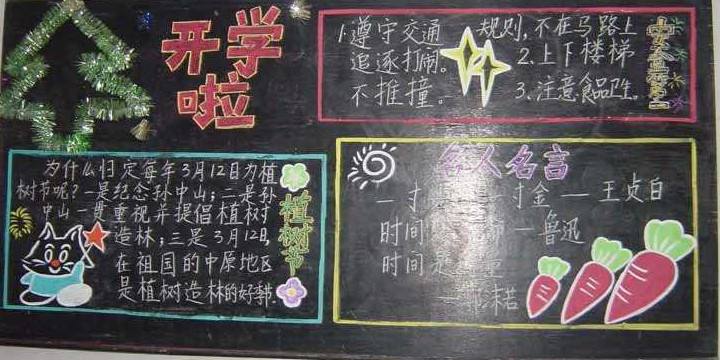 开学
啦
1.遵守交通规则,不在马路上
追逐打闹。2.上下楼梯
不推撞。3.注意食品卫生。
为什么归定每年3月12日为植
树节呢?一是纪念孙中山;二是孙
中山一重视并提倡植树
造林;三是3月12日,
在祖国的中原地区
是植树造林的好季节.
植树节
名人名言
一寸 寸金——王贞白
时间 —鲁迅
时间是
沫若